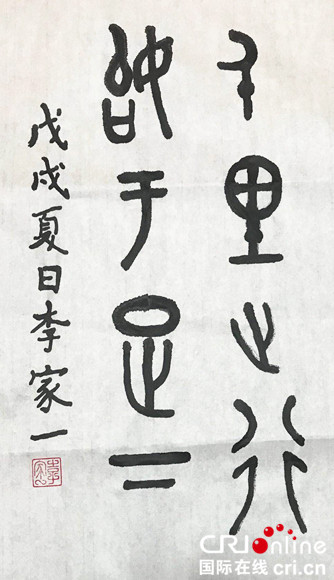 千里之行
始于足下
戊戌夏日李家一
CRI online
国际在线 cri.cn